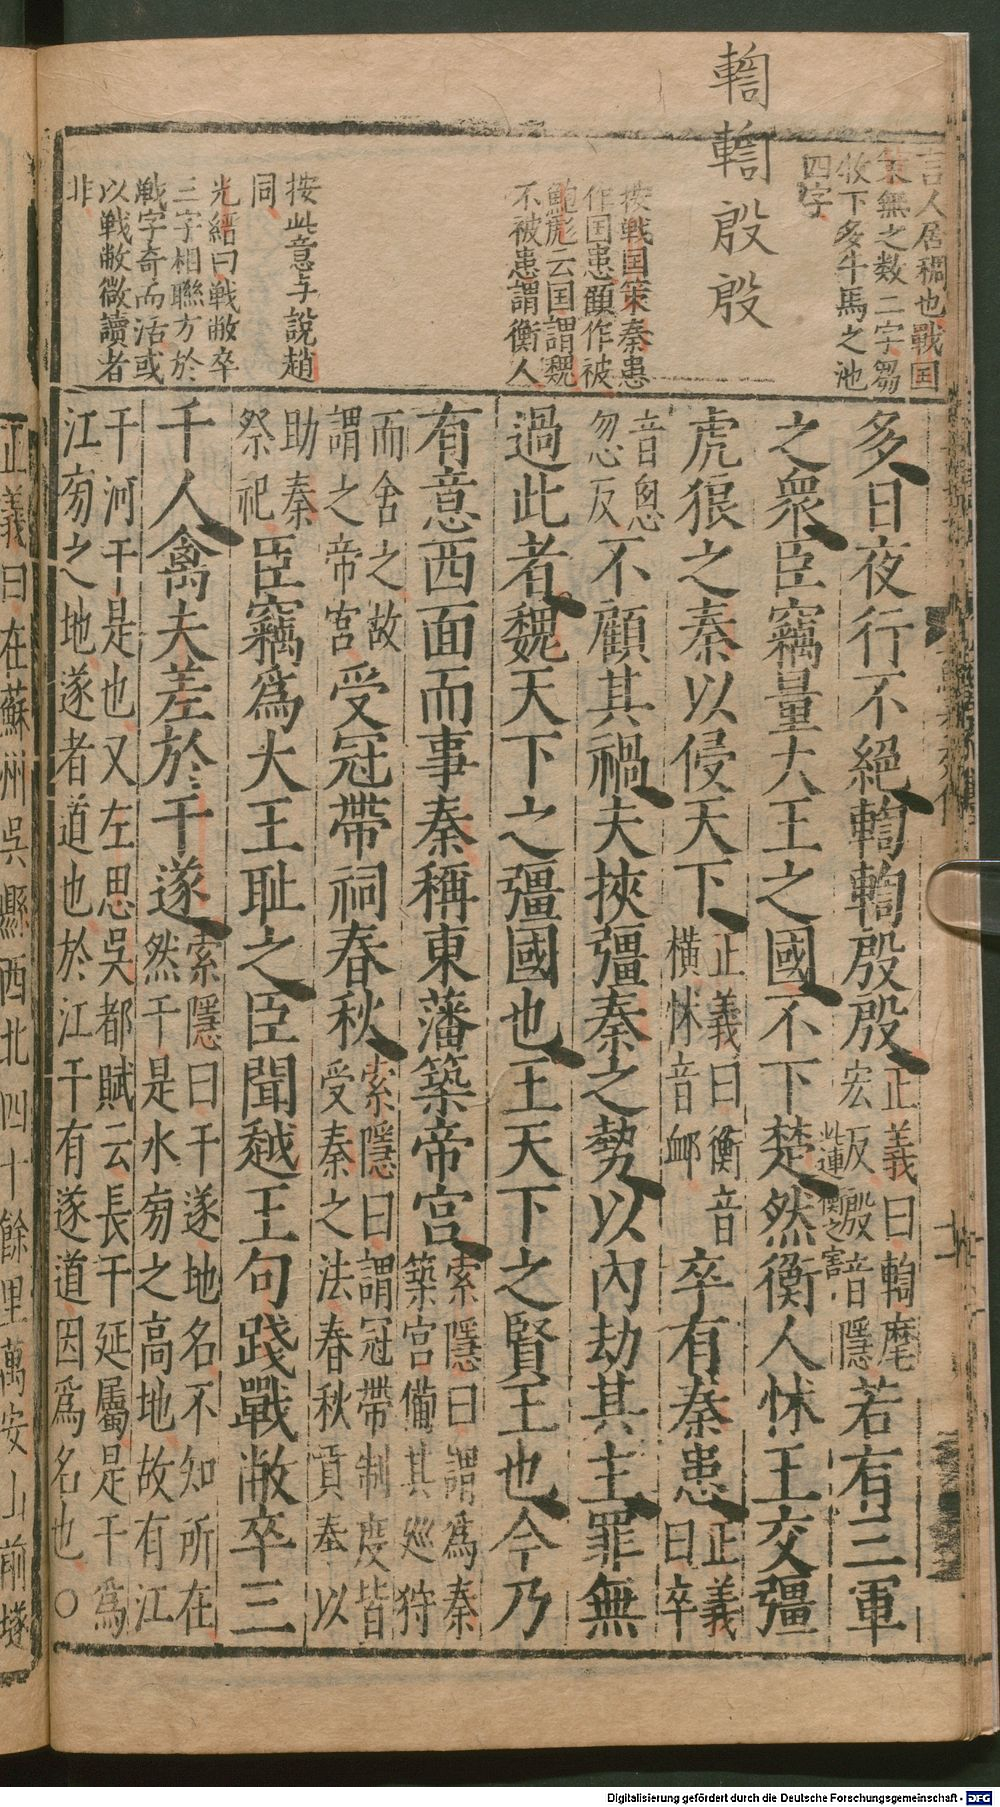 輷輷殷殷
言人居稠也戰国
策無之数二字芻
牧下多牛馬之池
四字
按戦国策秦患
作国患顧作被
鮑彪云国謂魏
不被患謂衡人
按此意与說趙
同
光縉曰戦敝卒
三字相聯方於
戰字奇而活或
以戰敝微讀者
非
多日夜行不絕輷輷殷殷正義曰輷麾宏反殷音隱若有三軍
之衆臣竊量大王之國不下楚然衡人怵王交彊
此連衡之害
虎狼之秦以侵天下正義曰衡音橫怵音卹卒有秦患正義曰卒
音悤忽反不顧其禍夫挾彊秦之勢以內劫其主罪無
過此者魏天下之彊國也王天下之賢王也今乃
有意西面而事秦稱東藩築帝宮索隱曰謂爲秦築宮備其巡狩
而舍之故謂之帝宮受冠帶祠春秋索隱曰謂冠帶制度皆受秦之法春秋貢奉以
助秦祭祀臣竊爲大王耻之臣聞越王句踐戰敝卒三
千人禽夫差於干遂索隱曰干遂地名不知所在然干是水旁之高地故有江
干河干是也又左思吳都賦云長干延屬是干爲江旁之地遂者道也於江干有遂道因爲名也○
正義曰在蘇州吳縣西北四十餘里萬安山前墢
Digitalisierung gefördert durch die Deutsche Forschungsgemeinschaft - DFG